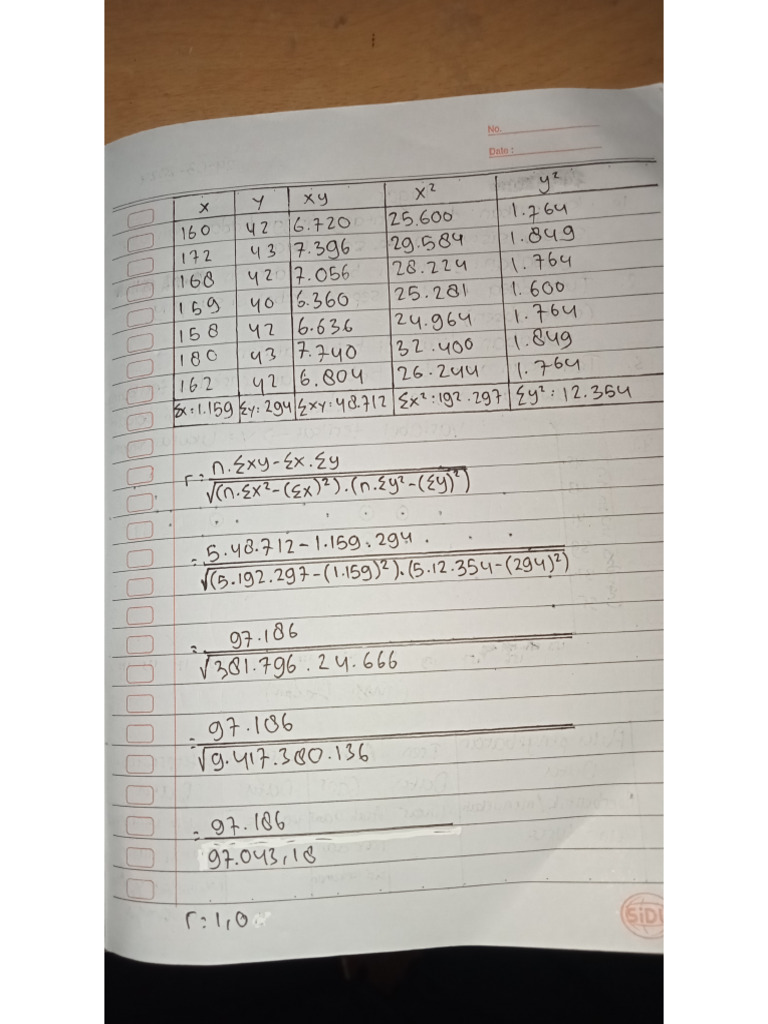 No.
Date :
x y xy x² y²
160 42 6.720 25.600 1.764
172 43 7.396 29.584 1.849
168 42 7.056 28.224 1.764
159 40 6.360 25.281 1.600
158 42 6.636 24.964 1.764
180 43 7.740 32.400 1.849
162 42 6.804 26.244 1.764
Σx = 1.159 Σy = 294 Σxy = 48.712 Σx² = 192.297 Σy² = 12.354
r = n.Σxy - Σx.Σy
√(n.Σx² - (Σx)²).(n.Σy² - (Σy)²)
= 5.48.712 - 1.159.294
√(5.192.297 - (1.159)²).(5.12.354 - (294)²)
= 97.186
√381.796.24.666
= 97.186
√9.417.380.136
= 97.186
97.043,18
r = 1,0
SiDU